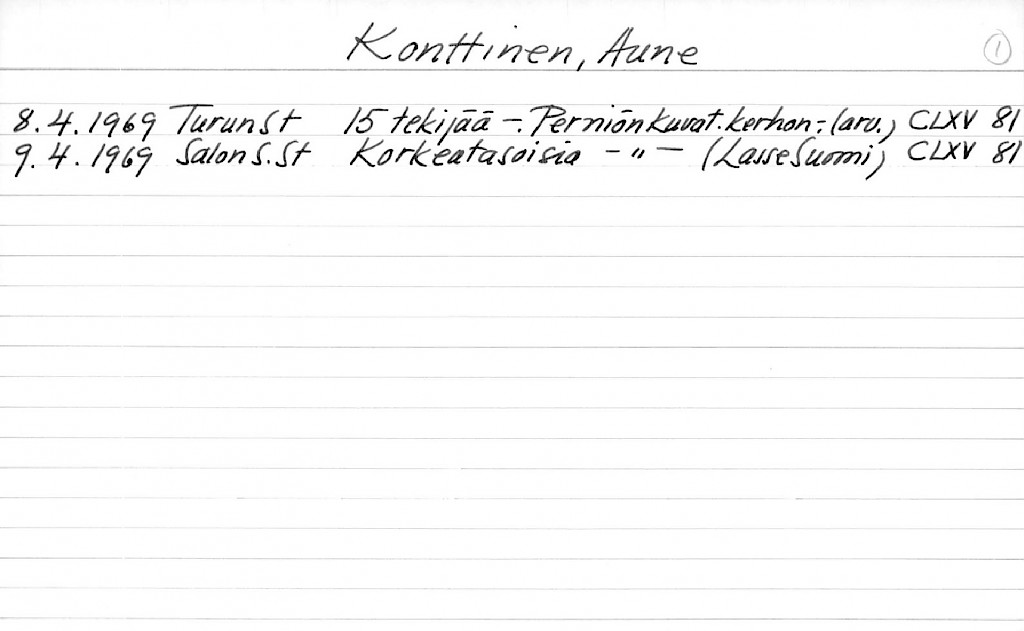 Konttinen, Aune 1
8.4.1969 Turun St 15 tekijää -. Perniön kuvat. kerhon -: (arv.) CLXV 81
9.4.1969 Salon S. St Korkeatasoisia - " - (Lasse Suomi) CLXV 81